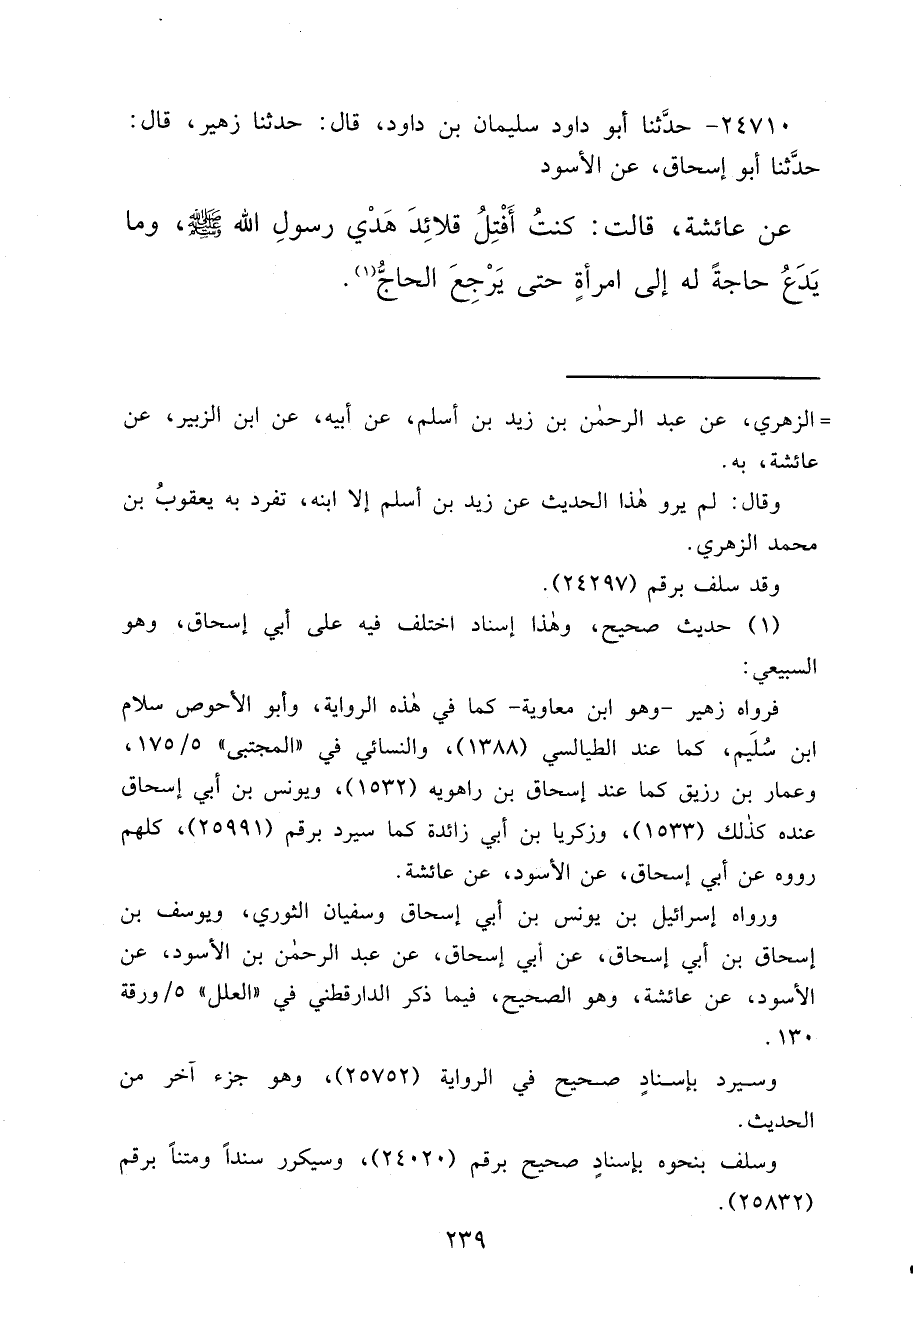 ٢٤٧١٠- حدَّثنا أبو داود سليمان بن داود، قال: حدثنا زهير، قال:
حدَّثنا أبو إسحاق، عن الأسود
عن عائشة، قالت: كنتُ أَفْتِلُ قلائِدَ هَدْي رسولِ الله ﷺ، وما
يَدَعُ حاجةً له إلى امرأةٍ حتى يَرْجِعَ الحاجُّ(١).
= الزهري، عن عبد الرحمٰن بن زيد بن أسلم، عن أبيه، عن ابن الزبير، عن
عائشة، به.
وقال: لم يرو هٰذا الحديث عن زيد بن أسلم إلا ابنه، تفرد به يعقوبُ بن
محمد الزهري.
وقد سلف برقم (٢٤٢٩٧).
(١) حديث صحيح، وهٰذا إسناد اختلف فيه على أبي إسحاق، وهو
السبيعي:
فرواه زهير -وهو ابن معاوية- كما في هٰذه الرواية، وأبو الأحوص سلام
ابن سُلَيم، كما عند الطيالسي (١٣٨٨)، والنسائي في «المجتبى» ١٧٥/٥،
وعمار بن رزيق كما عند إسحاق بن راهويه (١٥٣٢)، ويونس بن أبي إسحاق
عنده كذٰلك (١٥٣٣)، وزكريا بن أبي زائدة كما سيرد برقم (٢٥٩٩١)، كلهم
رووه عن أبي إسحاق، عن الأسود، عن عائشة.
ورواه إسرائيل بن يونس بن أبي إسحاق وسفيان الثوري، ويوسف بن
إسحاق بن أبي إسحاق، عن أبي إسحاق، عن عبد الرحمٰن بن الأسود، عن
الأسود، عن عائشة، وهو الصحيح، فيما ذكر الدارقطني في «العلل» ٥/ورقة
١٣٠.
وسيرد بإسنادٍ صحيح في الرواية (٢٥٧٥٢)، وهو جزء آخر من
الحديث.
وسلف بنحوه بإسنادٍ صحيح برقم (٢٤٠٢٠)، وسيكرر سنداً ومتناً برقم
(٢٥٨٣٢).
٢٣٩